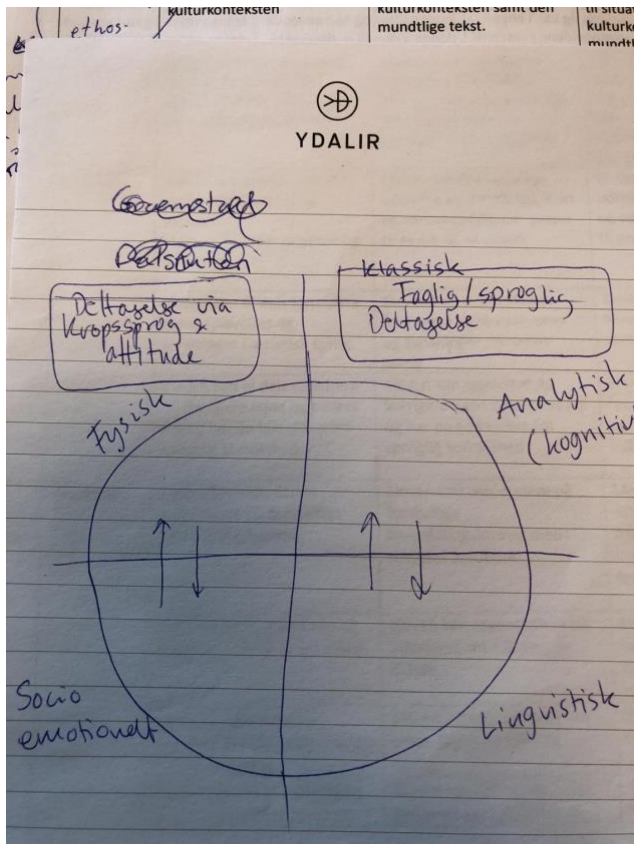 kulturkonteksten
kulturkonteksten samt den
mundtlige tekst.
til situa
kulturko
mundtl
ethos-
YDALIR
Deltagelse via
Kropssprog &
attitude
Klassisk
Faglig/sproglig
Deltagelse
Fysisk
Analytisk
(kognitiv
Socio
emotionelt
Lingvistisk